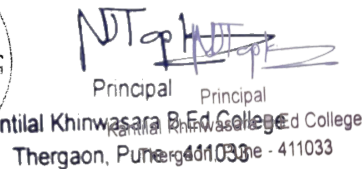 Principal Principal
ntilal Khinwasara B.Ed.College Kantilal Khinwasara B.Ed College
Thergaon, Pune - 411033 Thergaon, Pune - 411033